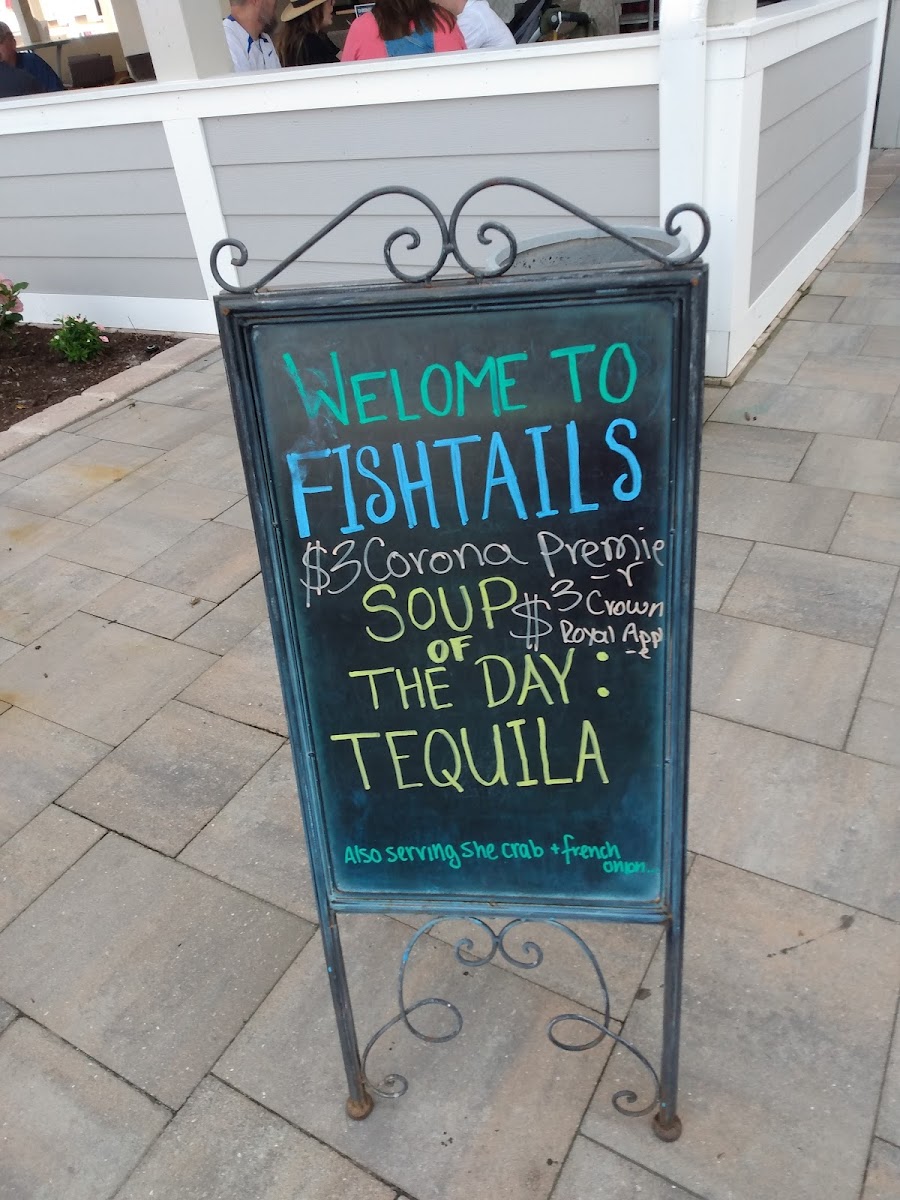 WELOME TO
FISHTAILS
$3 Corona Premie
-r
SOUP
$3 Crown
Royal App
-e
OF
THE DAY:
TEQUILA
Also serving She crab + french
onion...